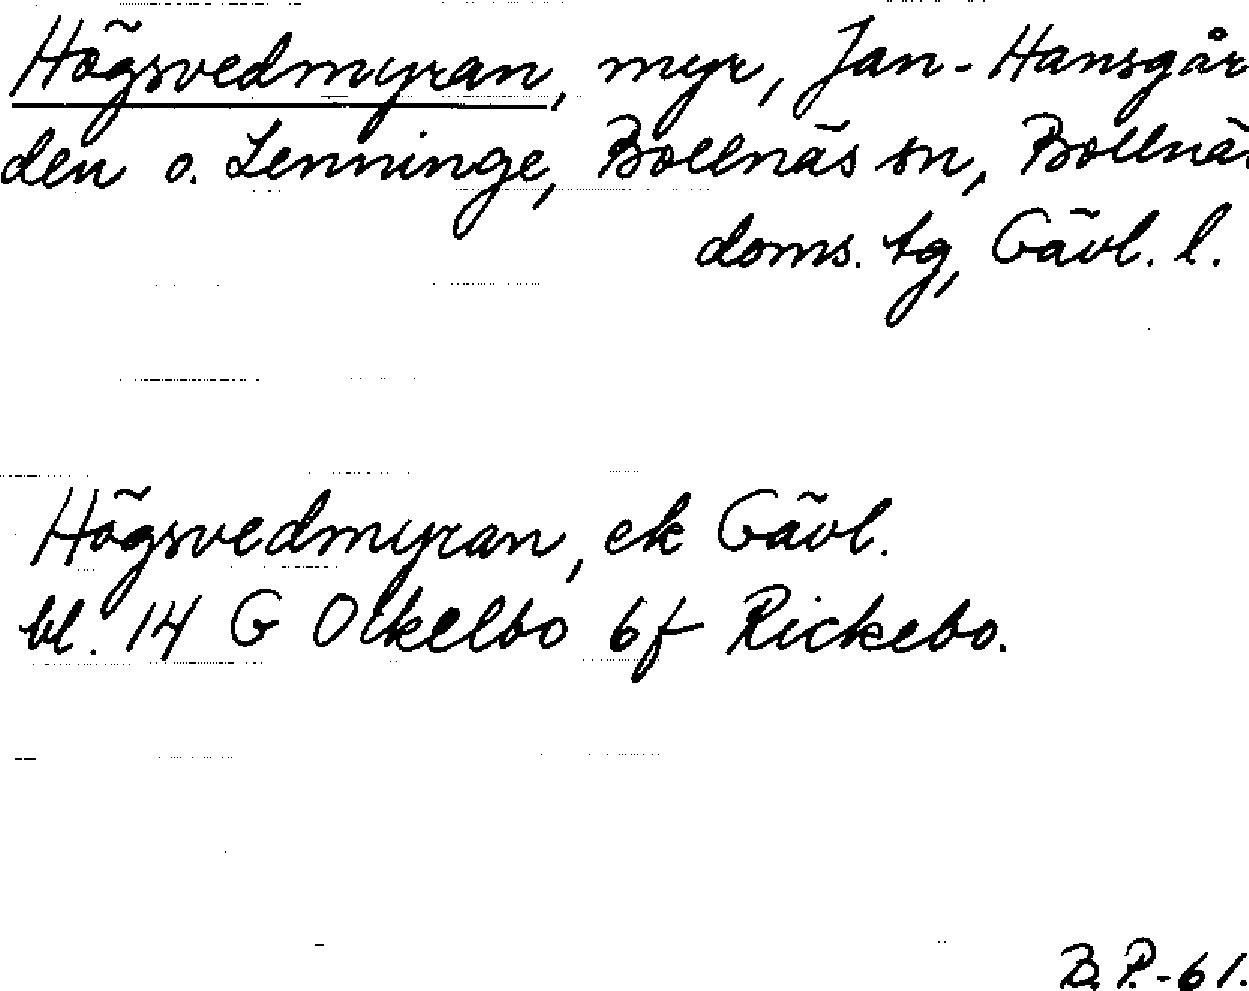 Högsvedmyran, myr, Jan-Hansgår
den o. Lenninge, Bollnäs sn, Bollnäs
doms. tg, Gävl. l.
Högsvedmyran, ek Gävl.
bl. 14 G Ockelbo 6f Rickebo.
B.P.-61.